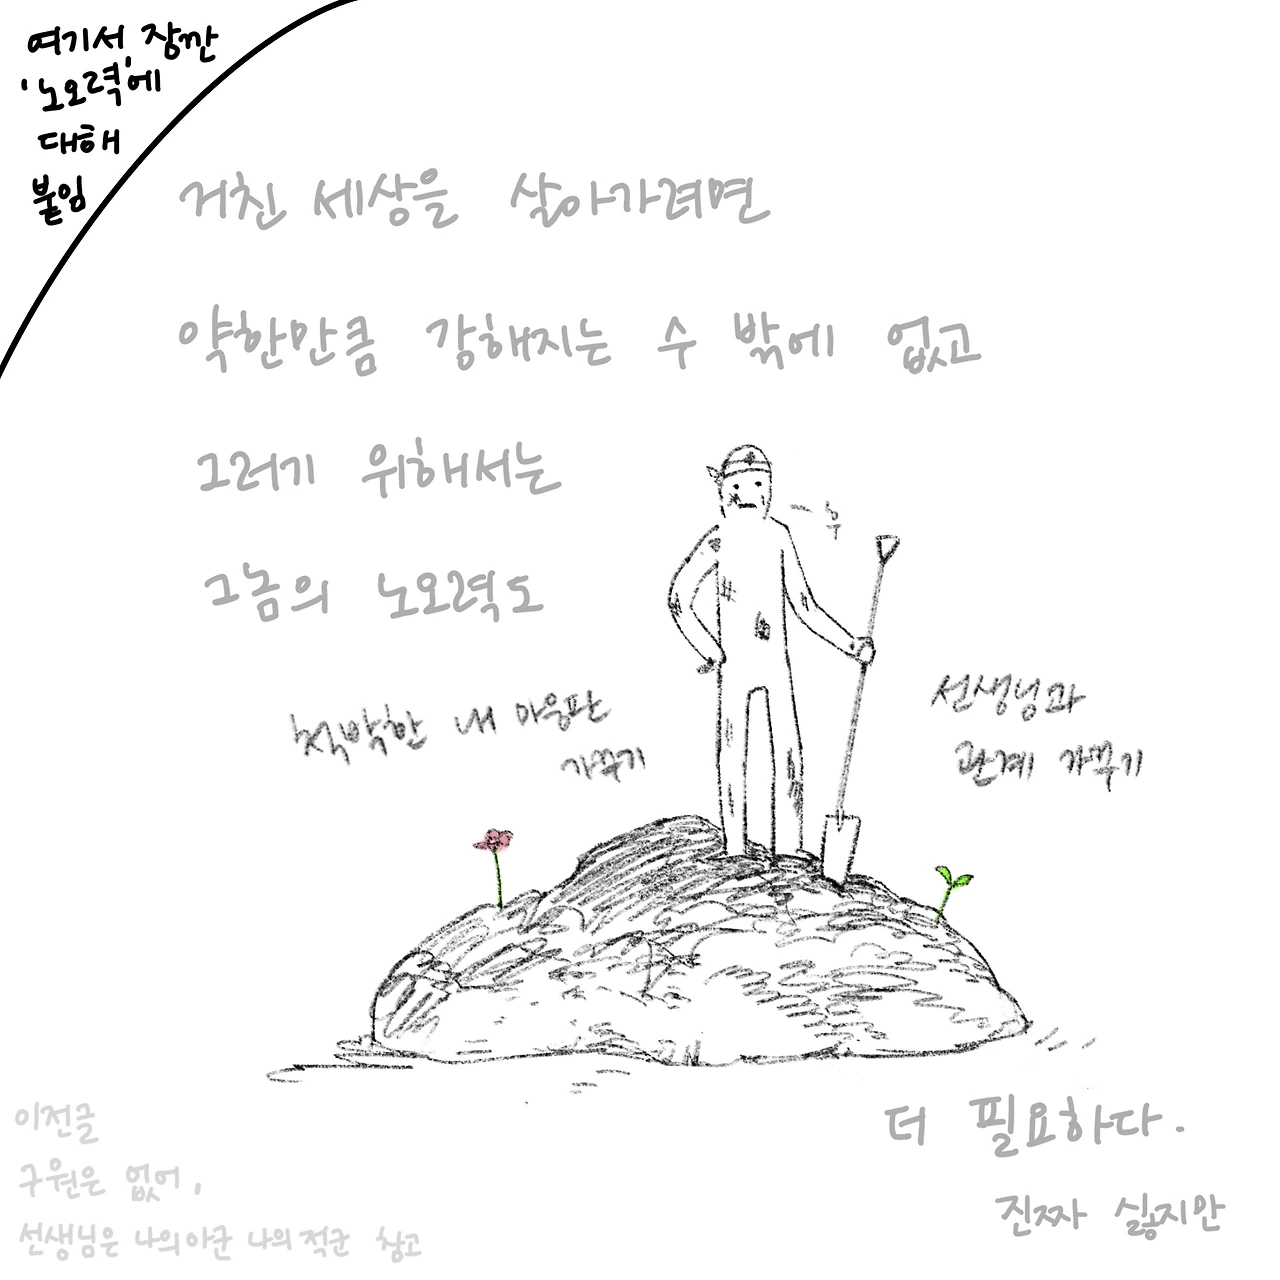 여기서 잠깐
'노오력'에
대해
붙임
거친 세상을 살아가려면
약한만큼 강해지는 수 밖에 없고
그러기 위해서는
그놈의 노오력도
후
척박한 내 마음판
가꾸기
선생님과
관계 가꾸기
더 필요하다.
진짜 싫지만
이전글
구원은 없어,
선생님은 나의 아군 나의 적군 참고